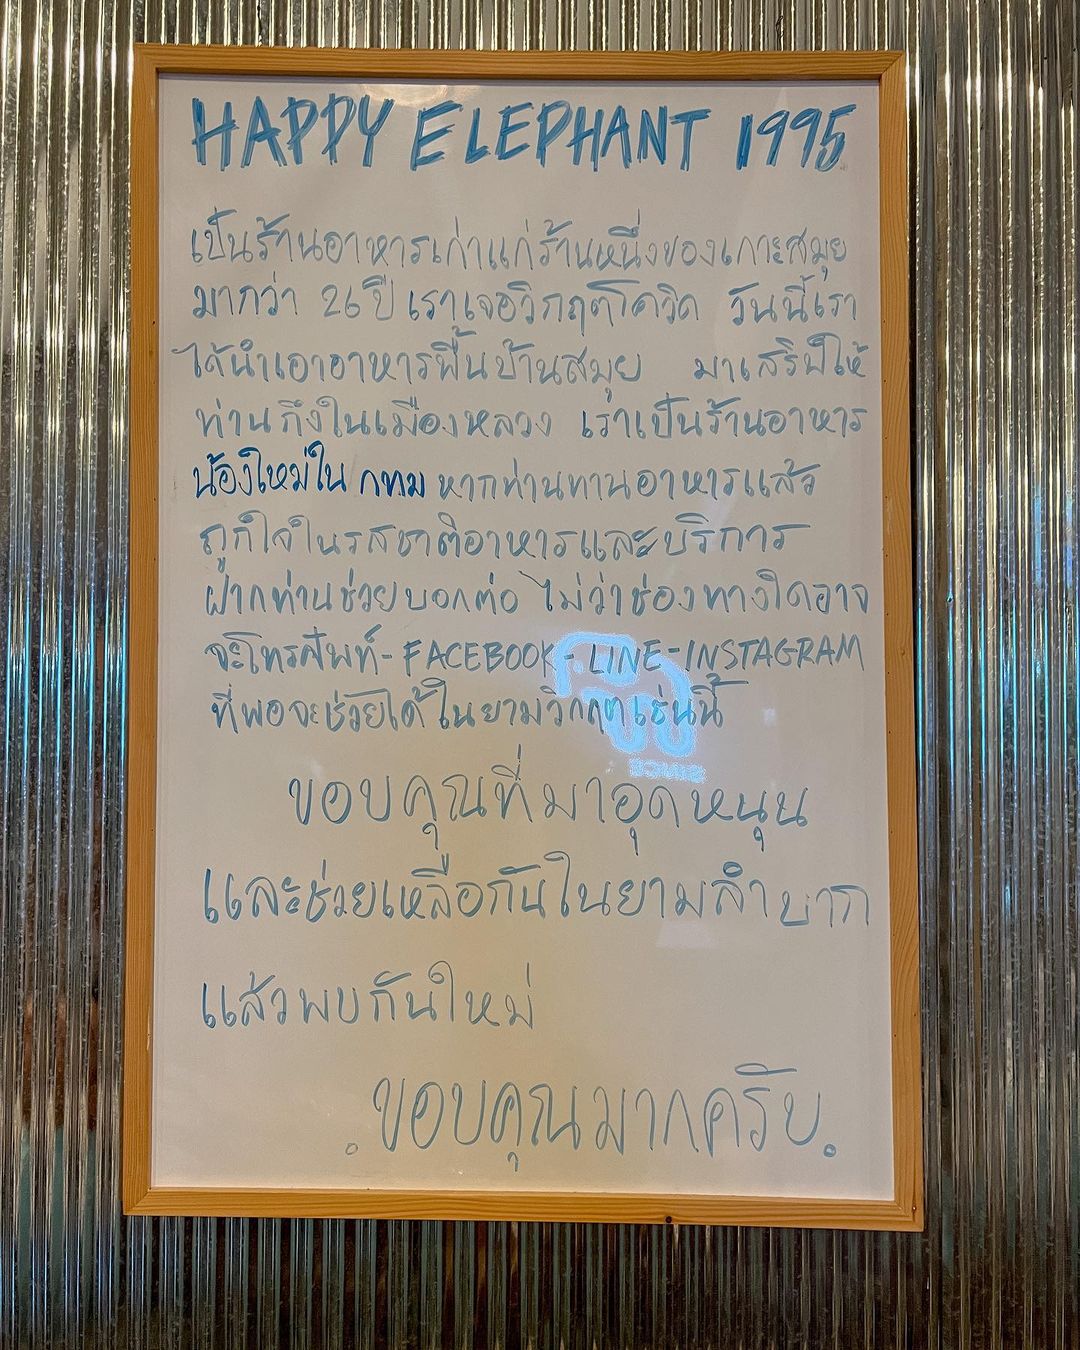 HAPPY ELEPHANT 1995
เป็นร้านอาหารเก่าแก่ร้านหนึ่งของเกาะสมุย
มากว่า 26 ปี เราเจอวิกฤตโควิด วันนี้เรา
ได้นำเอาอาหารพื้นบ้านสมุย มาเสริฟให้
ท่านถึงในเมืองหลวง เราเป็นร้านอาหาร
น้องใหม่ใน กทม หากท่านทานอาหารแล้ว
ถูกใจในรสชาติอาหารและบริการ
ฝากท่านช่วยบอกต่อ ไม่ว่าช่องทางใดอาจ
จะโทรศัพท์-FACEBOOK-LINE-INSTAGRAM
ที่พอจะช่วยได้ในยามวิกฤตเช่นนี้
ขอบคุณที่มาอุดหนุน
และช่วยเหลือกันในยามลำบาก
แล้วพบกันใหม่
.ขอบคุณมากครับ.